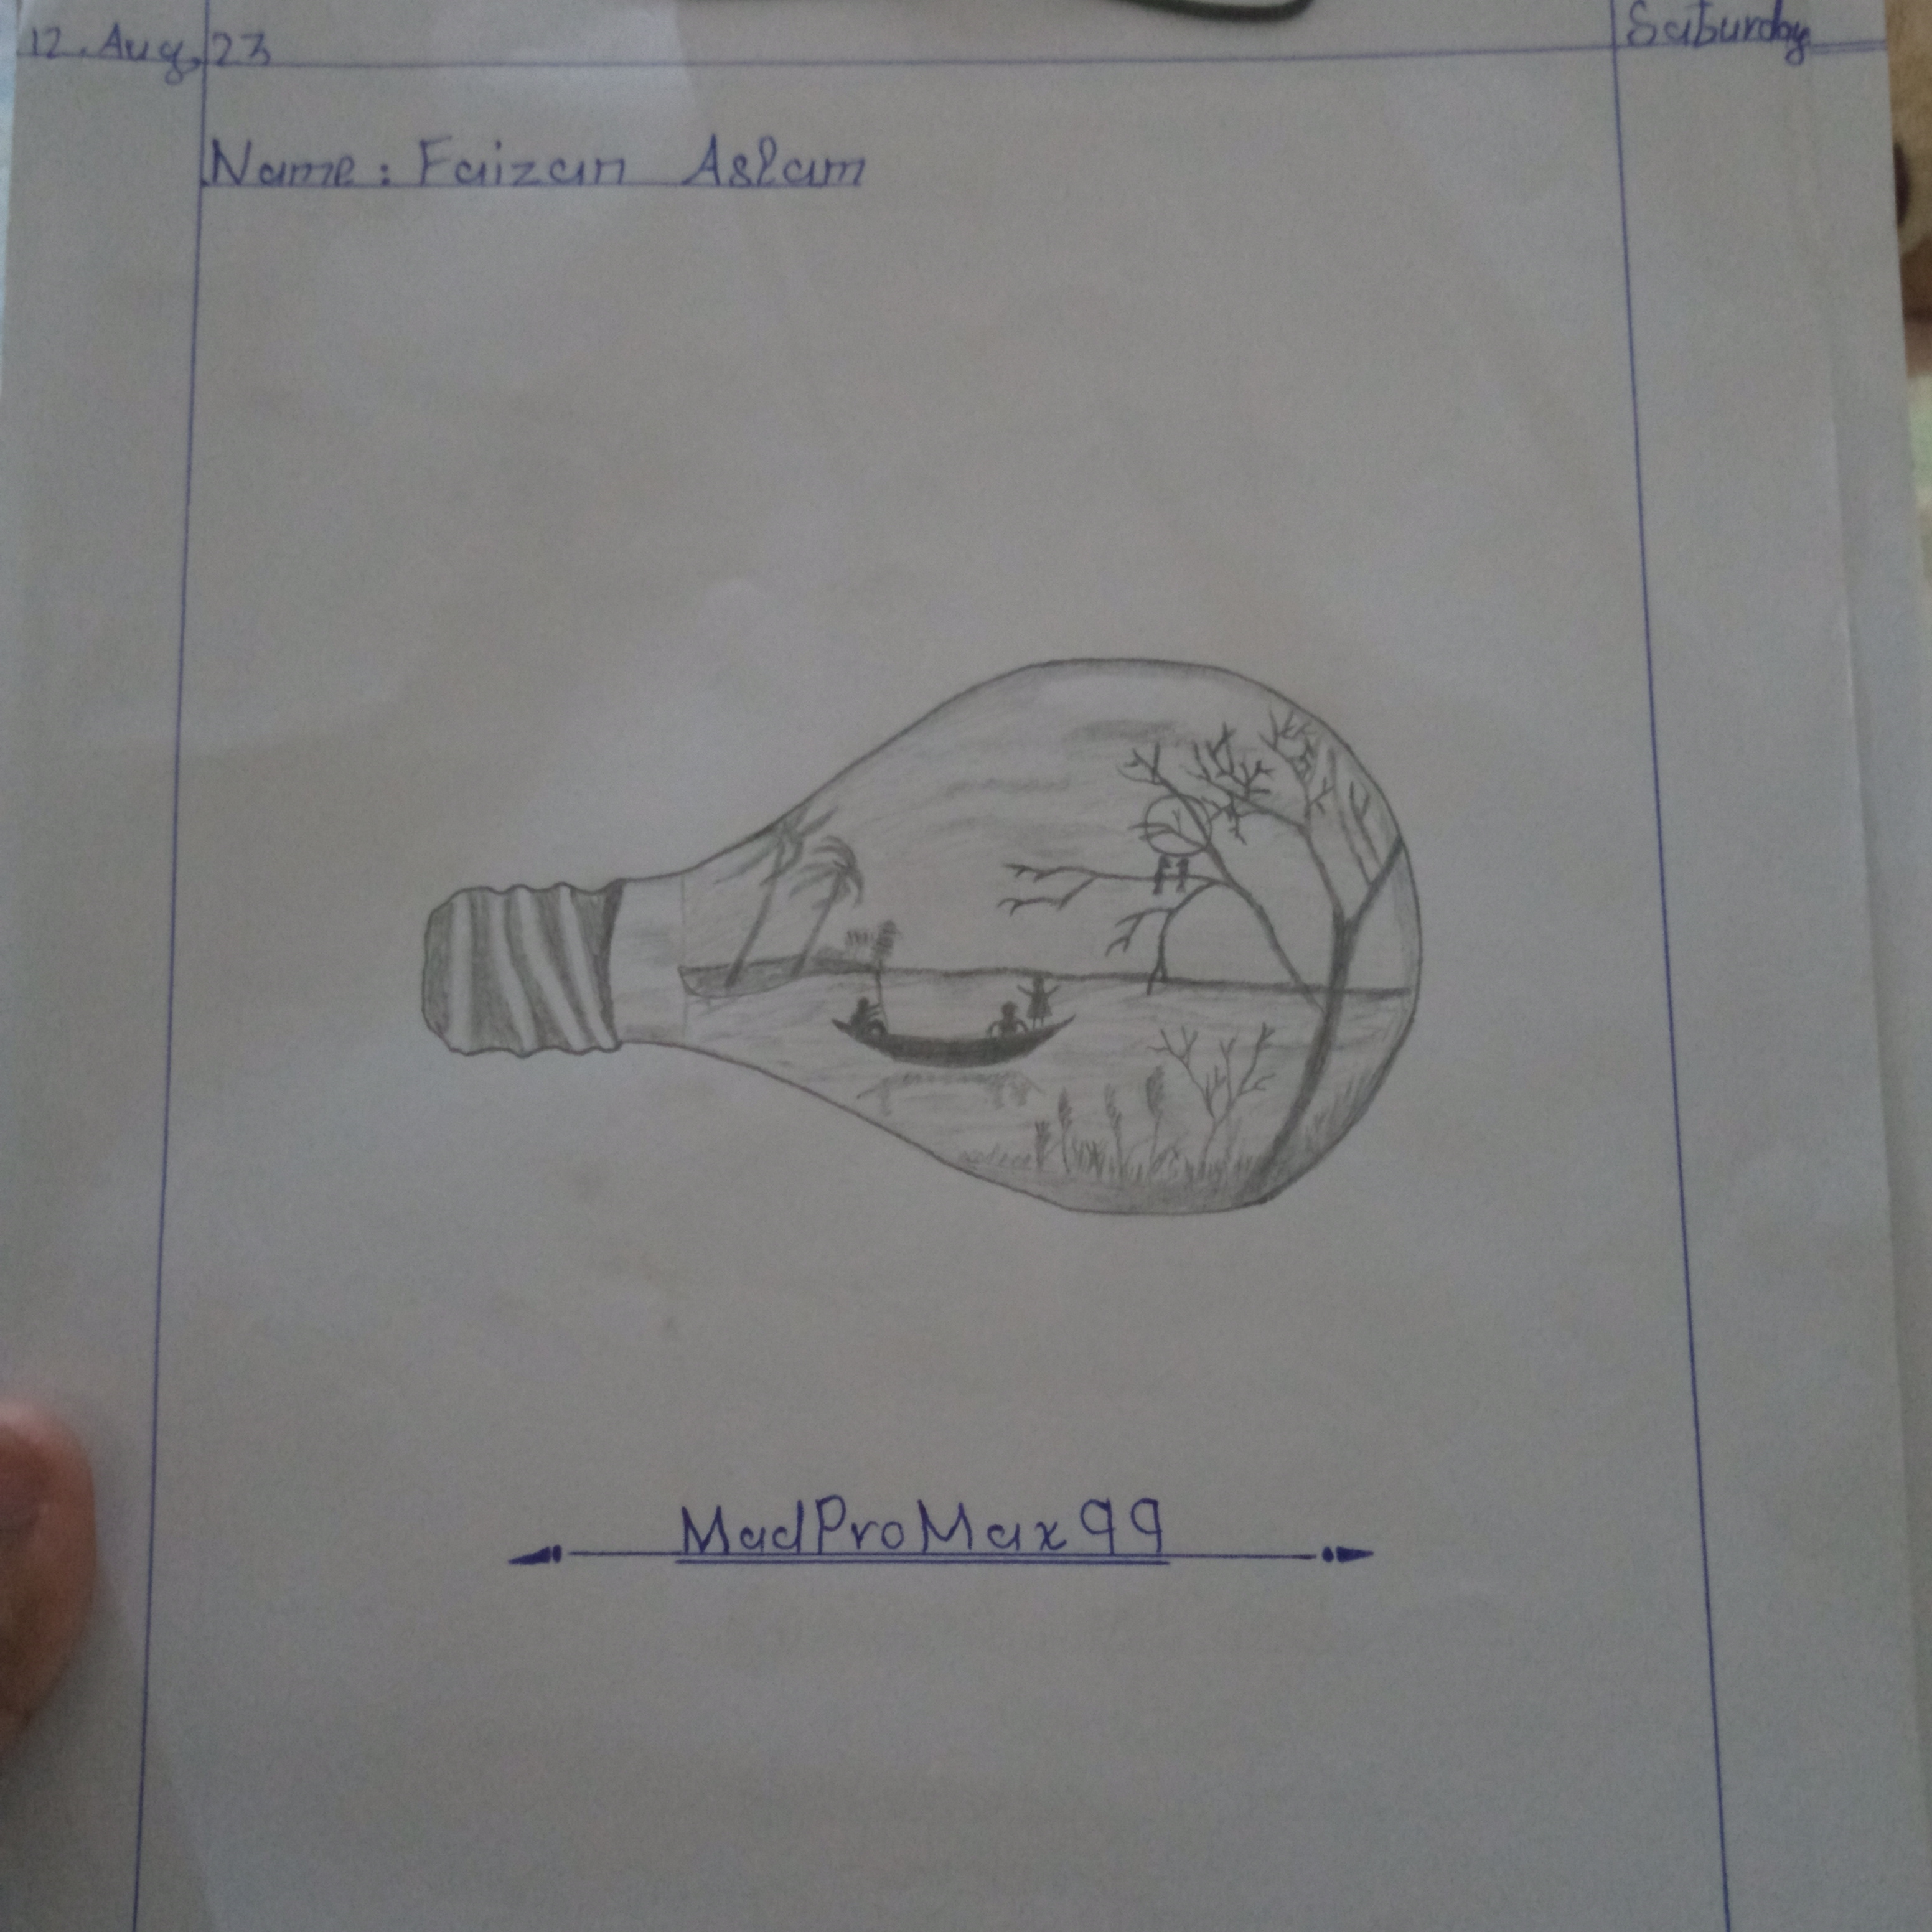 12. Aug, 23 Saturday
Name: Faizan Aslam
MadProMax99